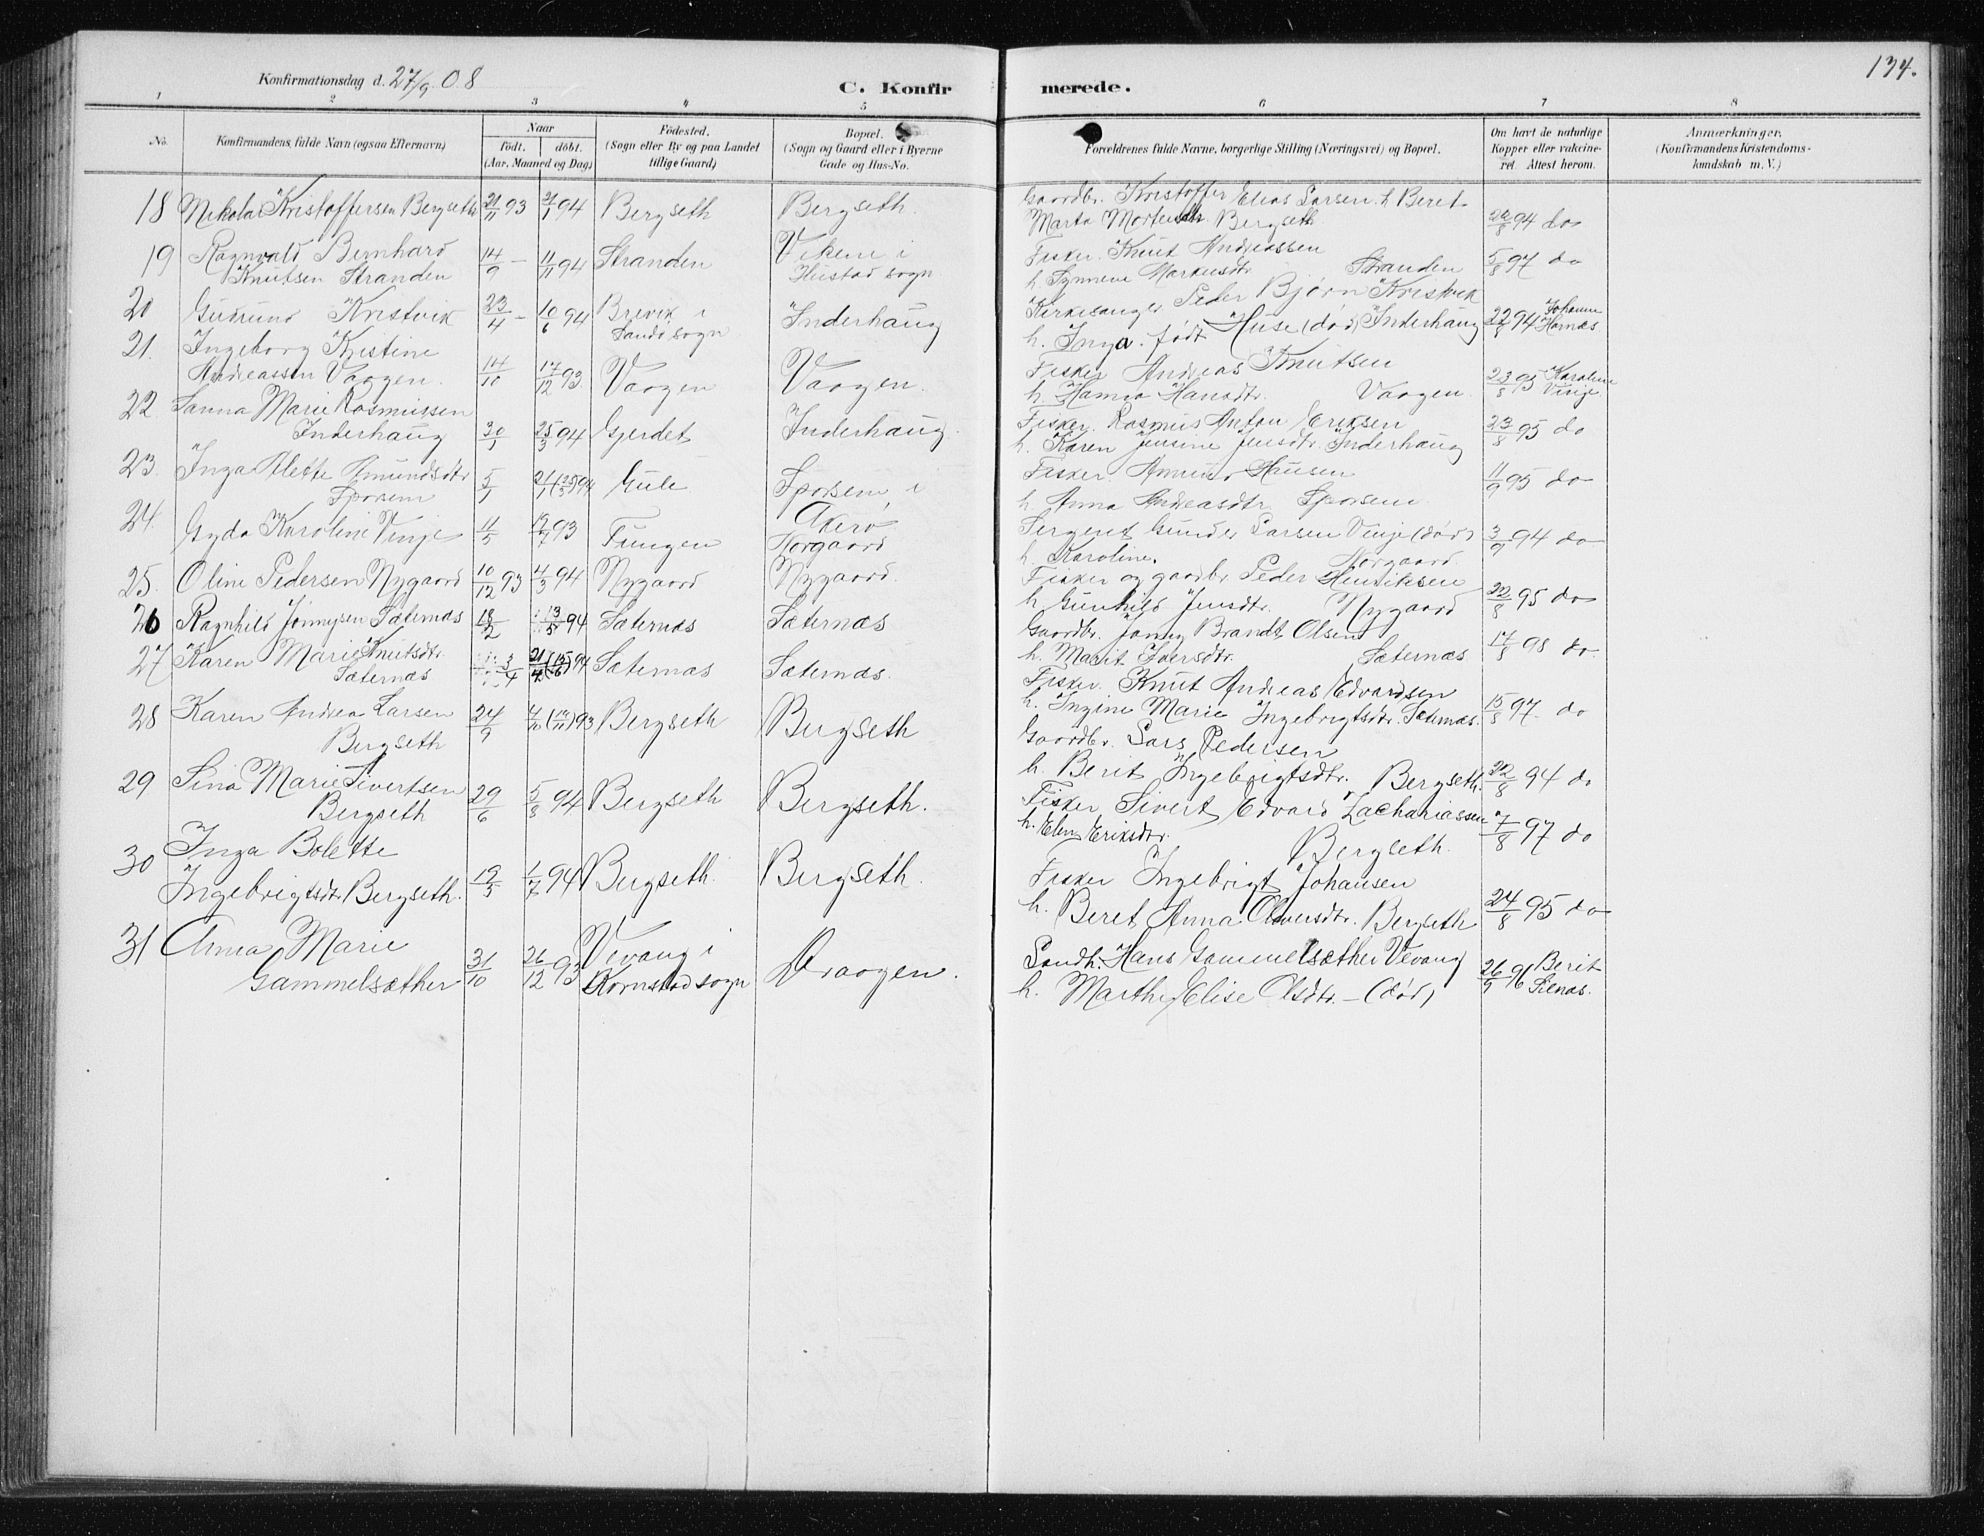 134.
Konfirmationsdag d. 27/9 08
C. Konfir merede.
1 2 3 4 5 6 7 8
No.
Konfirmandens fulde Navn (ogsaa Efternavn)
Naar
födt. döbt.
(Aar, Maaned og Dag)
Födested.
(Sogn eller By og paa Landet
tillige Gaard)
Bopæl.
(Sogn og Gaard eller i Byerne
Gade og Hus-No.
Forældrenes fulde Navne, borgerlige Stilling (Næringsvei) og Bopæl.
Om havt de naturlige
Kopper eller vakcine-
ret. Attest herom.
Anmærkninger.
(Konfirmandens Kristendoms-
kundskab m. V.)
18 Nikolai Kristoffersen Bergseth 21/11 93 2/1 94 Bergseth Bergseth Gaardbr. Kristoffer Elias Larsen h. Beret
Marta Mortensdtr. Bergseth 22/8 94 do
19 Ragnvald Bernhard
Knutsen Stranden 14/9 - 11/11 94 Stranden Viken i
Hustad sogn Fisker Knut Andreassen
h. Synneve Markusdtr. Stranden 5/8 97 do
20 Gudrund Kristvik 23/4 - 10/6 94 Brevik i
Sandö sogn Inderhaug Kirkesanger Peder Bjørn Kristvik
h. Inga født Huse (død) Inderhaug 22/8 94 Johanne
Hornæs
21. Ingeborg Kristine
Andreassen Vaagen. 14/10 17/12 93 Vaagen Vaagen. Fisker Andreas Knutsen
h. Hanna Hansdtr. Vaagen. 23/8 95 Karoline
Vinje
22 Sanna Marie Rasmussen
Inderhaug 30/1 25/3 94 Gjerdet Inderhaug. Fisker Rasmus Anton Eriksen
h. Karen Jensine Jensdtr. Inderhaug 23/8 95 do
23. Inga Alette Amundsdtr
Sporsem 5/1 Gule Sporsem i
Akerø Fisker Amund Hansen
h. Anna Andreasdtr Sporsem 11/9 95 do
24 Gyda Karoline Vinje 11/5 93 Fungen Norgaard Sergent Gunder Larsen Vinje (død)
h. Karoline. Norgaard 3/9 94 do
25. Oline Pedersen Nygaard 10/12 93 4/3 94 Nygaard Nygaard Fisker og gaardbr. Peder Henriksen
h. Gunhild Jensdtr. Nygaard 22/8 95 do
26 Ragnhild Jonnysen Sæternæs 18/2 13/5 94 Sæternæs Sæternæs Gaardbr. Jonny Brandt Olsen
h. Marit Iversdtr. Sæternæs 17/8 98 do
27 Karen Marie Knutsdtr.
Sæternæs 3/4 21/4 (15/6) 94 Sæternæs Sæternæs. Fisker Knut Andreas Edvardsen
h. Ingine Marie Ingebrigtsdtr. Sæternæs. 15/8 97. do
28 Karen Andrea Larsen
Bergseth 24/9 93 Bergseth Bergseth Gaardbr. Lars Pedersen
h. Berit Ingebrigtsdtr. Bergseth. 22/8 94 do
29 Sina Marie Sivertsen
Bergseth 29/6 5/8 94 Bergseth Bergseth. Fisker Sivert Edvard Zachariassen
h. Elen Eriksdtr. Bergseth. 7/8 97 do
30 Inga Bolette
Ingebrigtsdtr. Bergseth. 19/5 1/7 94 Bergseth. Bergseth. Fisker Ingebrigt Johansen
h. Beret Anna Olsersdtr. Bergseth 24/8 95 do
31 Anna Marie
Gammelsæther 31/10 26/12 93 Vevang i
Kornstad sogn Draagen. Landh. Hans Gammelsæther Vevang
h. Marthe Elise Olsdtr. - (død) 26/9 96 Berit
Silnæs.